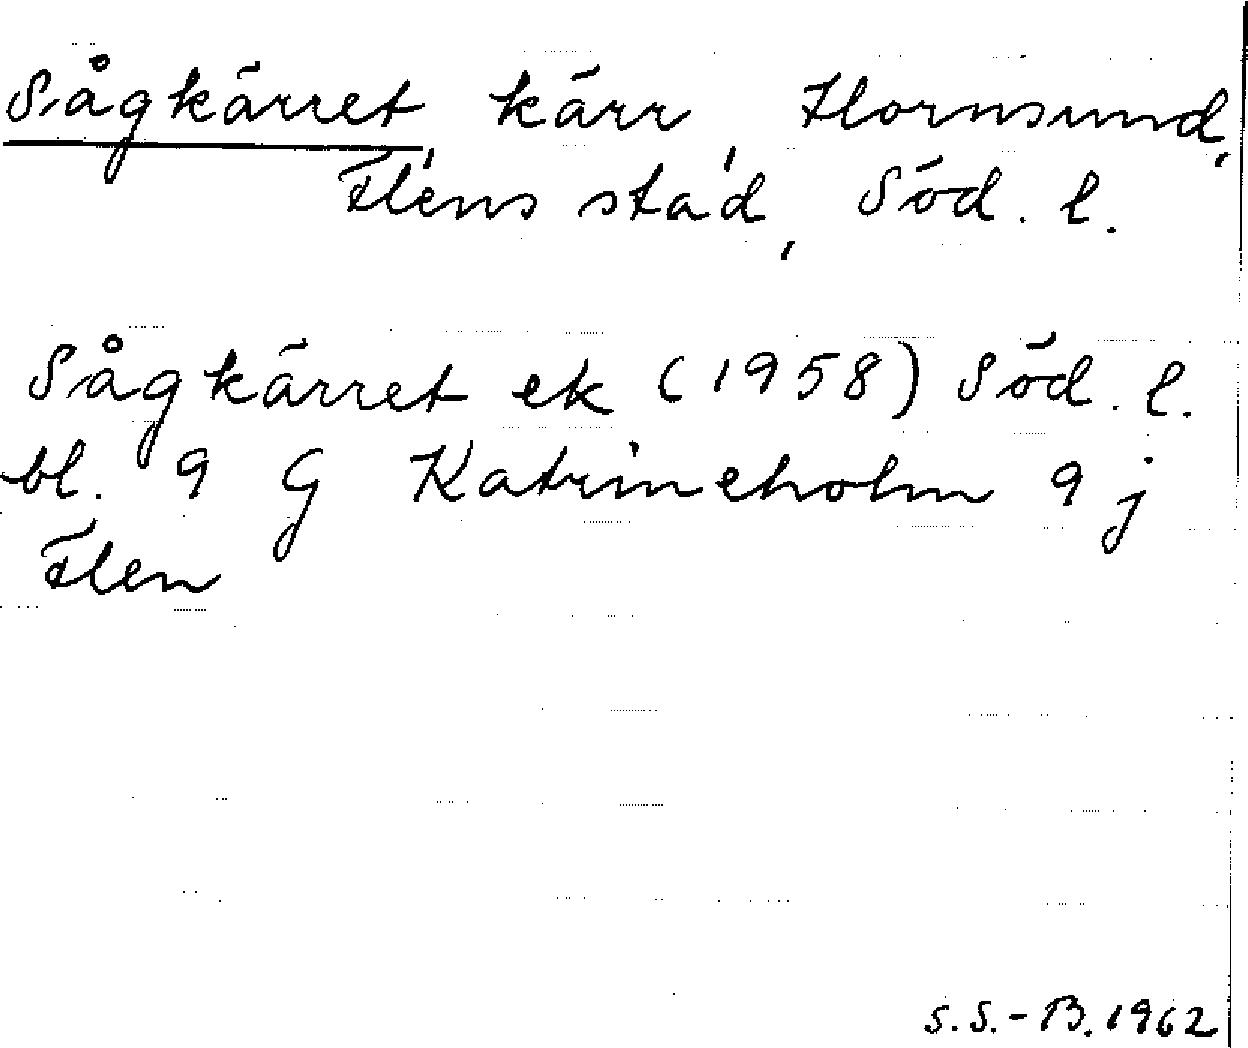 Sågkärret, kärr, Hornsund,
Flens stad, Söd. l.
Sågkärret ek (1958) Söd. l.
bl. 9 G Katrineholm 9 j
Flen
S.S.-B. 1962